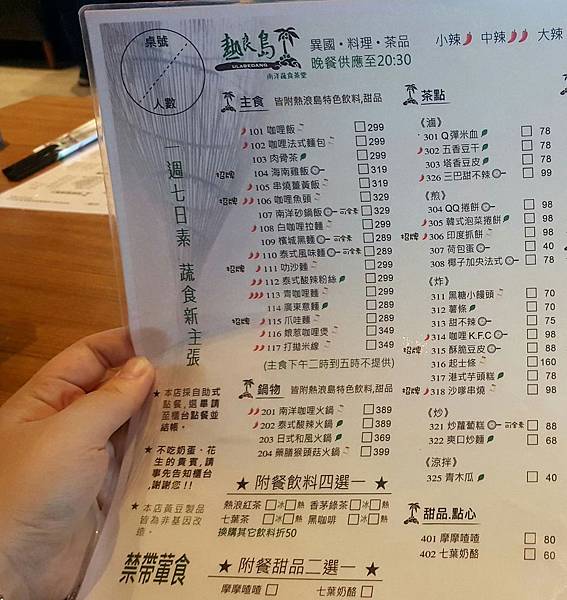 桌號
人數
熱浪島
ULABEDANG
南洋蔬食茶堂
異國・料理・茶品
晚餐供應至20:30
小辣 中辣 大辣
一週七日素 蔬食新主張
主食 皆附熱浪島特色飲料,甜品
101 咖哩飯 299
102 咖哩法式麵包 299
103 肉骨茶 299
招牌 104 海南雞飯 319
105 串燒薑黃飯 319
招牌 106 咖哩魚頭 329
107 南洋砂鍋飯 可全素 329
108 白咖哩拉麵 299
109 檳城黑麵 可全素 289
110 泰式風味麵 可全素 289
招牌 111 叻沙麵 299
112 泰式酸辣粉絲 299
113 青咖哩麵 299
114 廣東意麵 289
招牌 115 爪哇麵 289
116 娘惹咖哩煲 349
117 打拋米線 349
(主食下午二時到五時不提供)
鍋物 皆附熱浪島特色飲料,甜品
201 南洋咖哩火鍋 389
202 泰式酸辣火鍋 389
203 日式和風火鍋 369
204 藥膳猴頭菇火鍋 399
★ 附餐飲料四選一 ★
熱浪紅茶 冰 熱 香茅綠茶 冰 熱
七葉茶 冰 熱 黑咖啡 冰 熱
換購其它飲料折50
★ 附餐甜品二選一 ★
摩摩喳喳 七葉奶酪
★ 本店採自助式點餐,選單請至櫃台點餐並結帳。
★ 不吃奶蛋、花生的貴賓,請事先告知櫃台,謝謝您!!
★ 本店黃豆製品皆為非基因改造。
禁帶葷食
茶點
《滷》
301 Q彈米血 78
302 五香豆干 78
303 塔香豆皮 78
招牌 326 三巴甜不辣 99
《煎》
304 QQ捲餅 98
305 韓式泡菜捲餅 98
招牌 306 印度抓餅 98
307 荷包蛋 40
308 椰子加央法式 78
《炸》
311 黑糖小饅頭 70
312 薯條 70
313 甜不辣 75
314 咖哩 K.F.C 98
招牌 315 酥脆豆皮 88
316 起士條 160
317 港式芋頭糕 78
招牌 318 沙嗲串燒 98
《炒》
321 炒蘿蔔糕 可全素 88
322 爽口炒麵 68
《涼拌》
325 青木瓜 40
甜品.點心
401 摩摩喳喳 80
402 七葉奶酪 60